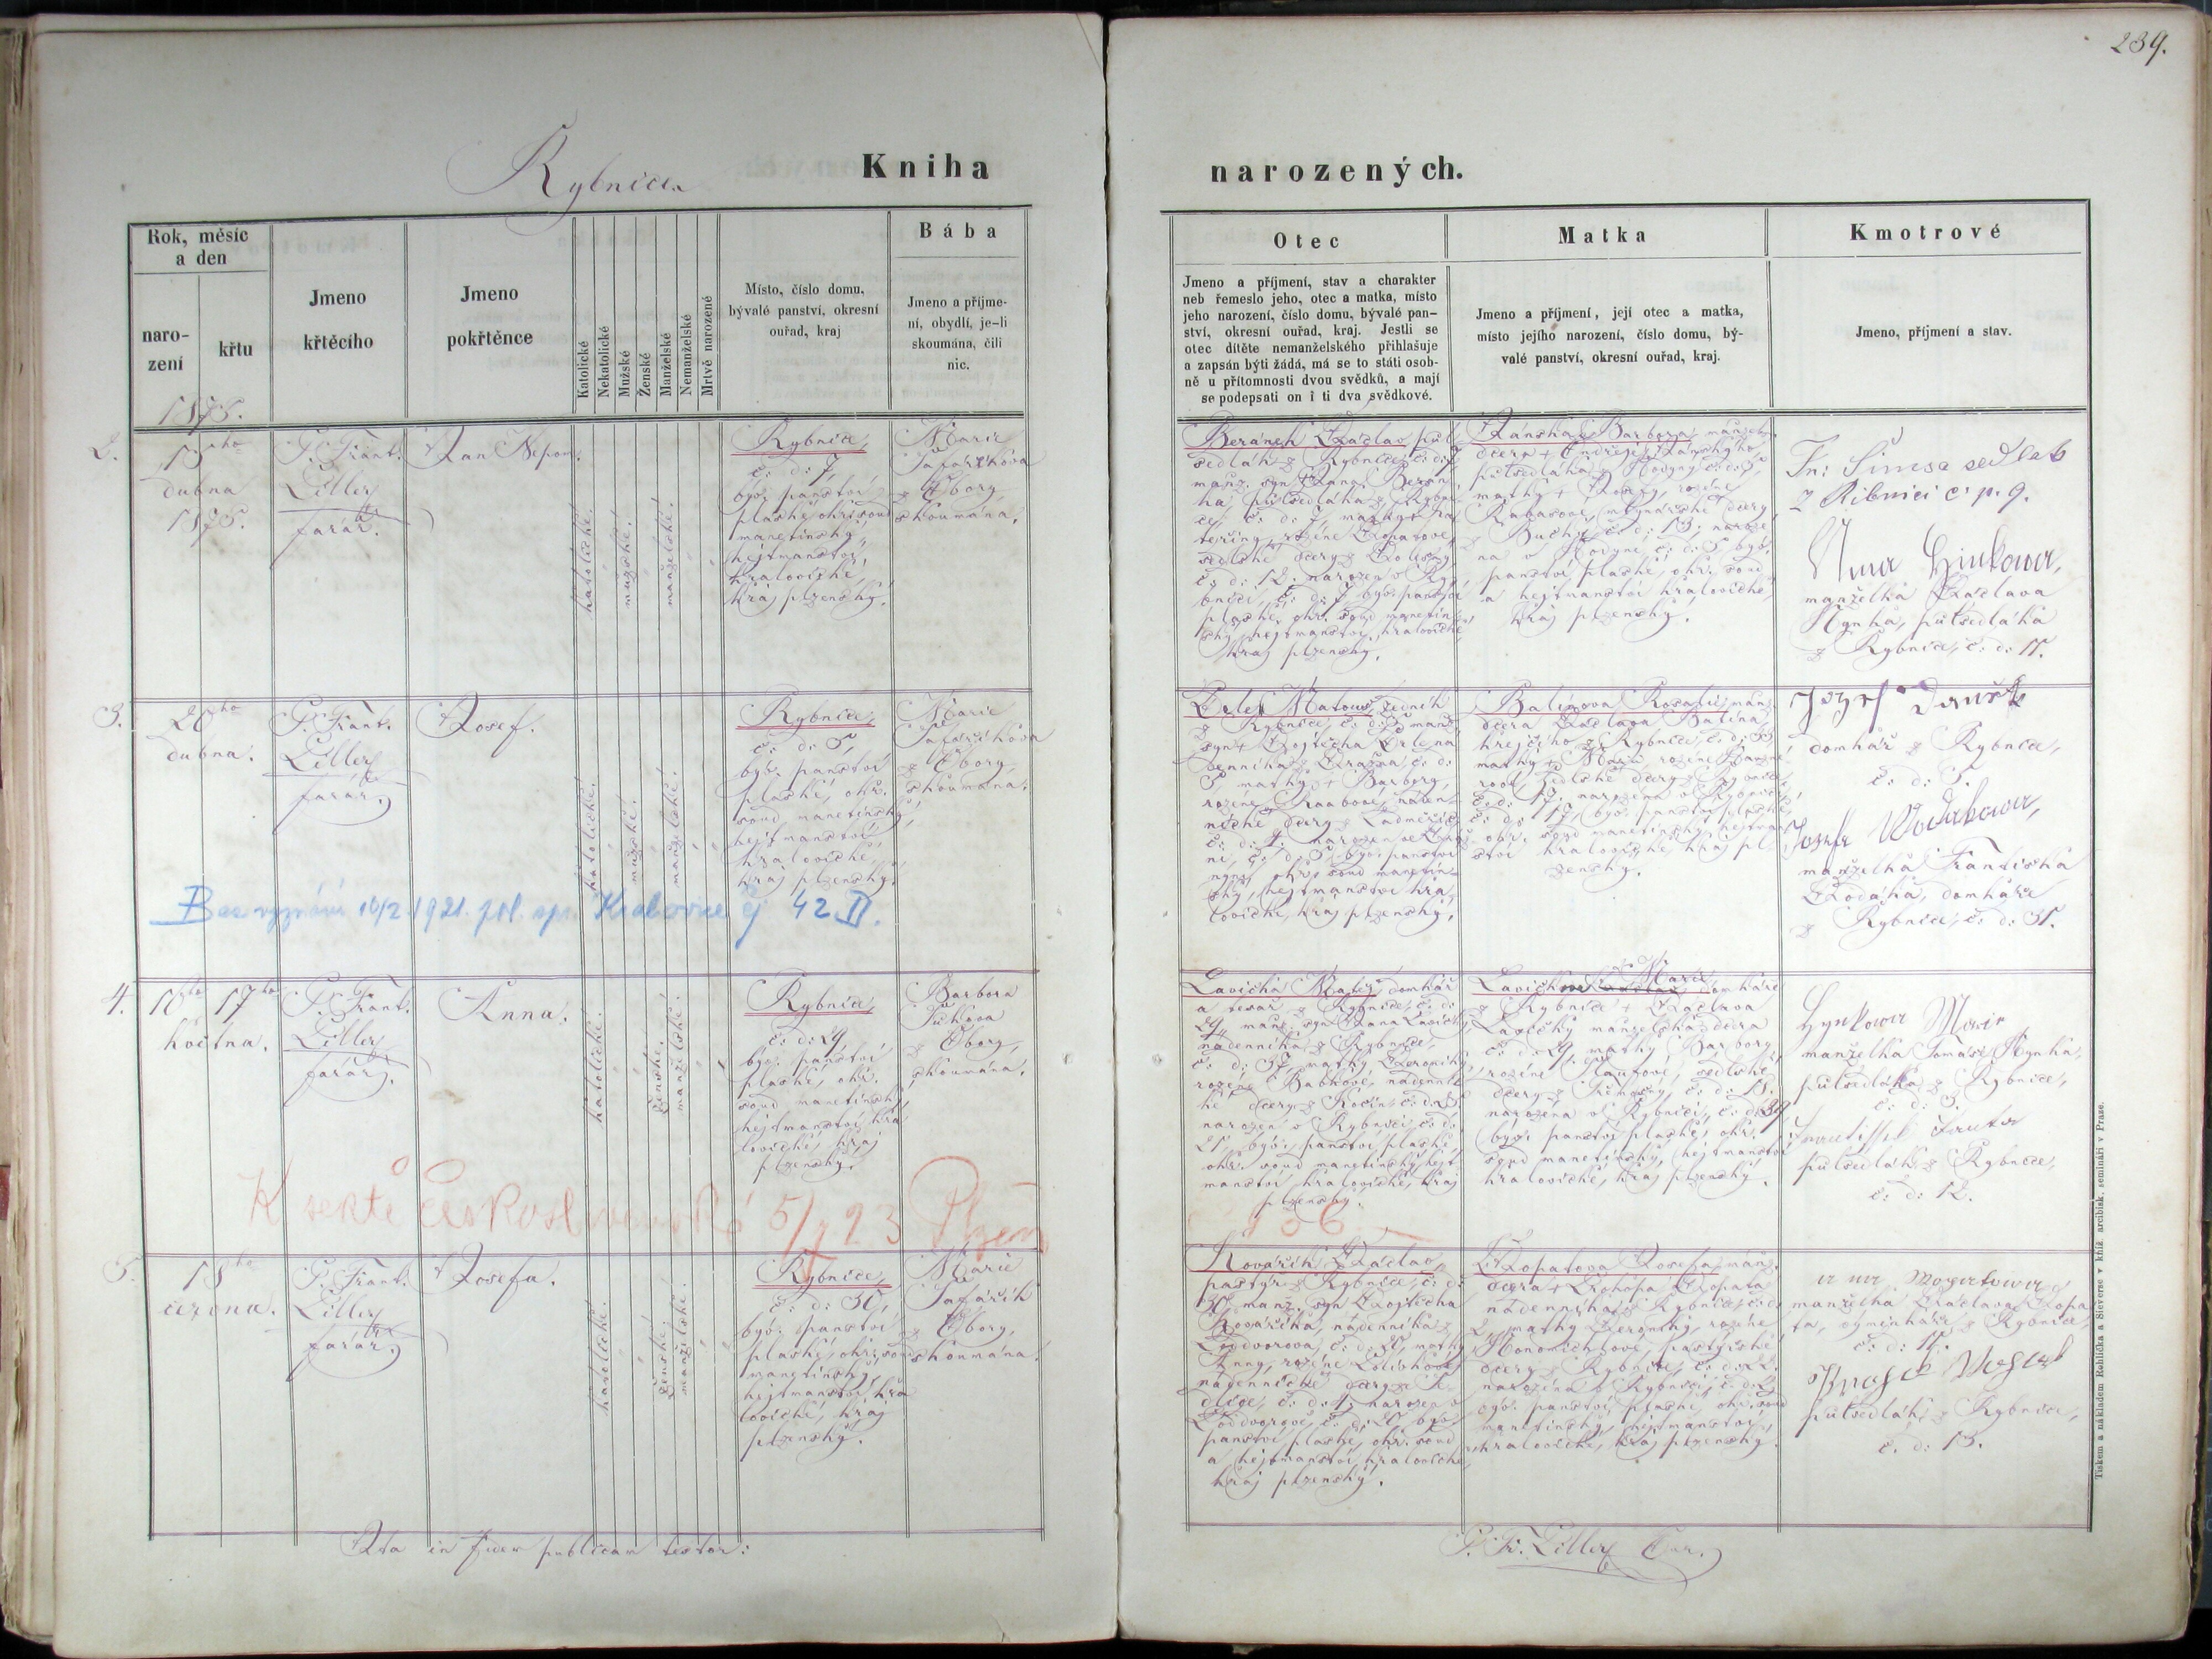 239.
Rybnice.
Kniha
narozených.
Rok, měsíc
a den
naro-
zení
křtu
Jmeno
křtěcího
Jmeno
pokřtěnce
Katolické
Nekatolické
Mužské
Ženské
Manželské
Nemanželské
Mrtvě narozené
Místo, číslo domu,
bývalé panství, okresní
ouřad, kraj
Bába
Jmeno a příjme-
ní, obydlí, je-li
skoumána, čili
nic.
Otec
Jmeno a příjmení, stav a charakter
neb řemeslo jeho, otec a matka, místo
jeho narození, číslo domu, bývalé pan-
ství, okresní ouřad, kraj. Jestli se
otec dítěte nemanželského přihlašuje
a zapsán býti žádá, má se to státi osob-
ně u přítomnosti dvou svědků, a mají
se podepsati on i ti dva svědkové.
Matka
Jmeno a příjmení, její otec a matka,
místo jejího narození, číslo domu, bý-
valé panství, okresní ouřad, kraj.
Kmotrové
Jmeno, příjmení a stav.
1875.
2.
13ho
dubna
1875.
P. Frant.
Liller
farář.
Jan Nepom.
katolické.
mužské.
manželské.
Rybnice,
č: d: 7,
býv. panství
plaské, okr: soud
manetínský,
hejtmanství
kralovické,
kraj plzenský.
Marie
Tafaříkova
z Obory,
skoumána.
Beránek Václav, půl-
sedlák z Rybnice, č: d: 7,
manž. syn Jana Berán-
ka, půlsedláka z Rybni-
ce, č: d: 7, matky Ka-
teřiny, rozené Lopatove,
selské dcery z Dolesny
č: d: 12. narozen v Ry-
bnici, č: d: 7 býv. panství
plaské, okr. soud manetín-
ský, hejtmanství kralovické,
kraj plzenský.
Jánská Barbora, manžel.
dcera + Ondřeje Janského,
půlsedláka z Hodyně č: d: 5,
matky + Josefy, rozené
Rabasové, mlynářské dcery
z Buchy, č: d: 13; naroze-
na v Hodyne, č: d: 5 býv.
panství plaské, okr. soud
a hejtmanství kralovické,
kraj plzenský.
Fn: Simsa sedlak
z Ribnici č: p. 9.
Anna Hinkowa,
manželka Václava
Hynka, půlsedláka
z Rybnice, č: d: 11.
3.
20ho
dubna.
P. Frant.
Liller
farář.
Josef.
katolické.
mužské.
manželské.
Rybnice,
č: d: 5,
býv. panství
plaské, okr.
soud manetínský,
hejtmanství
kralovické,
kraj plzenský.
Marie
Tafaříkova
z Obory,
skoumána.
Matouš, zedník
z Rybnice, č: d: 5, manž.
syn + Vojtěcha
denníka z Vražna č: d:
5, matky + Barbory,
rozené Kraabové, náden-
nické dcery z
č: d: 4. narozen ve Vraž-
ně, č: d: 5, býv. panství
okr. soud manetín-
ský, hejtmanství kra-
lovické, kraj plzenský.
Balinova Rosalie, manž.
dcera Václava Balina,
krejčího z Rybnice, č: d: 33,
matky + Marie, rozené
rové, sedlské dcery z Rybnice,
č: d: 17. narozena v Rybnici,
č: d: 17, býv. panství plaské,
okr. soud manetínský, hejtman-
ství kralovické, kraj pl-
zenský.
Jozef Daněk
domkář z Rybnice,
č: d: 5.
Josefa Wodakowa,
manželka Františka
Vodáka, domkáře
z Rybnice, č: d: 31.
Bez vyznání 10/2 1921. pol. spr. Kralovice čj 42 II.
4.
16ho
17ho
května.
P. Frant.
Liller
farář.
Anna.
katolické.
ženské.
manželské.
Rybnice,
č: d: 29,
býv. panství
plaské, okr.
soud manetínský,
hejtmanství kra-
lovické, kraj
plzenský.
Barbora
Jůhova
z Obory,
skoumána.
Lavička Matěj, domkář
a tesař z Rybnice, č: d:
29, manž. syn Jana Lavičk.,
nádenníka z Rybnice,
č: d: 37, matky, Veroniky
rozené Babkové, nádennic-
ké dcery z Kočína č: d: 28.
narozen v Rybnici, č: d:
21, býv. panství plaské,
okr. soud manetínský, hejt-
manství kralovické, kraj
plzenský.
Marie
Lavičkova domkáře
z Rybnice + Václava
Lavičky manželská dcera
č: d: 29, matky Barbory,
rozené Krautové, sedlské
dcery z Třemošný, č: d: 18.
narozena v Rybnici, č: d: 29
býv. panství plaské, okr.
soud manetínský, hejtmanství
kralovické, kraj plzenský.
Hynkowa Marie
manželka Tomáše Hynka,
půlsedláka z Rybnice,
č: d: 3.
Frantissek Krauta
půlsedlák z Rybnice,
č: d: 12.
K sektě československé 5/1 23 Plzeň
5.
13ho
června.
P. Frant.
Liller
farář.
Josefa.
katolické.
ženské.
manželské.
Rybnice,
č: d: 30,
býv. panství
plaské, okr: soud
manetínský,
hejtmanství kra-
lovické, kraj
plzenský.
Marie
Tafařík
z Obory,
skoumána.
Kovářík Václav,
pastýř z Rybnice, č: d:
30, manž. syn Vojtěcha
Kováříka, nádenníka z
Loddvorova, č: d: 20, matky
Anny, rozené
nádennické dcery
č: d: 4; narozen v
č: d: 20 býv.
panství plaské, okr. soud
a hejtmanství kralovické,
kraj plzenský.
Lopatova Josefa, manž.
dcera + Prokopa Lopaty,
nádenníka z Rybnice, č: d:
2, matky Veroniky, rozené
pastýřské
dcery z Rybnice, č: d: 22.
narozena v Rybnici, č: d: 2,
býv. panství plaské, okr. soud
manetínský, hejtmanství
kralovické, kraj plzenský.
manželka Václava Lopa-
ta, výminkáře z Rybnice,
č: d: 11.
půlsedlák z Rybnice,
č. d: 13.
Ita in fidem publicam testor:
P. Fr. Liller Cur.
Tiskem a nákladem Rohlíčka a Sieverse v kníž. arcibisk. semináři v Praze.